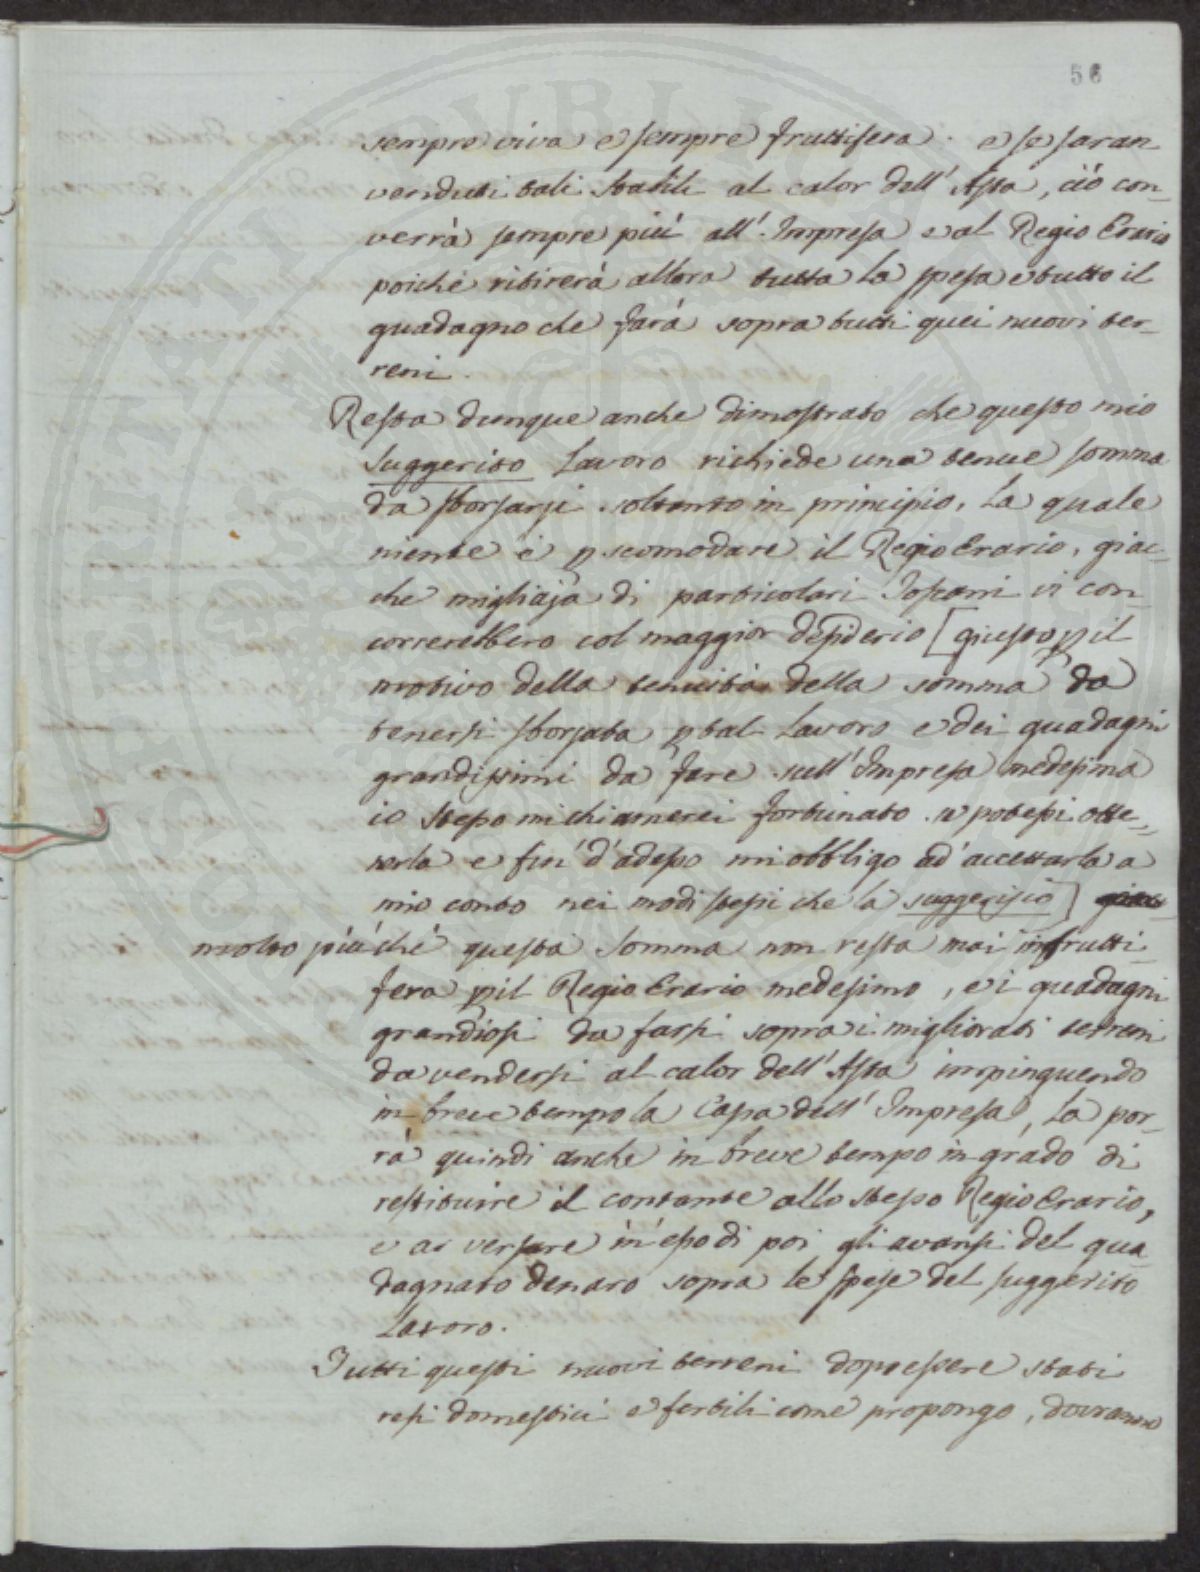 56
sempre viva e sempre fruttifera. e se saran
venduti tali stabili al calor dell' Asta, ciò con-
verrà sempre più all' Impresa e al Regio Erario
poiché ritirerà allora tutta la spesa e tutto il
guadagno che farà sopra tutti quei nuovi ter-
reni.
Resta dunque anche dimostrato che questo mio
suggerito Lavoro richiede una tenue somma
da sborsarsi soltanto in principio, la quale
niente è p scomodare il Regio Erario, giac-
che migliaja di particolari Toscani vi con-
correrebbero col maggior desiderio [giusto p il
motivo della tenuità della somma da
tenersi sborsata p tal Lavoro e dei guadagni
grandissimi da fare sull' Impresa medesima
io stesso mi chiamerei fortunato se potessi otte-
nerla e fin' d'adesso mi obbligo ad' accettarla a
mio conto nei modi stessi che la suggerisco]
molto più ché questa somma non resta mai infrutti-
fera p il Regio Erario medesimo, e i guadagni
grandiosi da farsi sopra i migliorati terreni
da vendersi al calor dell' Asta impinguendo
in breve tempo la Cassa dell' Impresa, la por-
rà quindi anche in breve tempo in grado di
restituire il contante allo stesso Regio Erario,
e a versare in esso di poi gli avanzi del gua
dagnato denaro sopra le spese del suggerito
Lavoro.
Tutti questi nuovi terreni dopo essere stati
resi domestici e fertili come propongo, dovranno